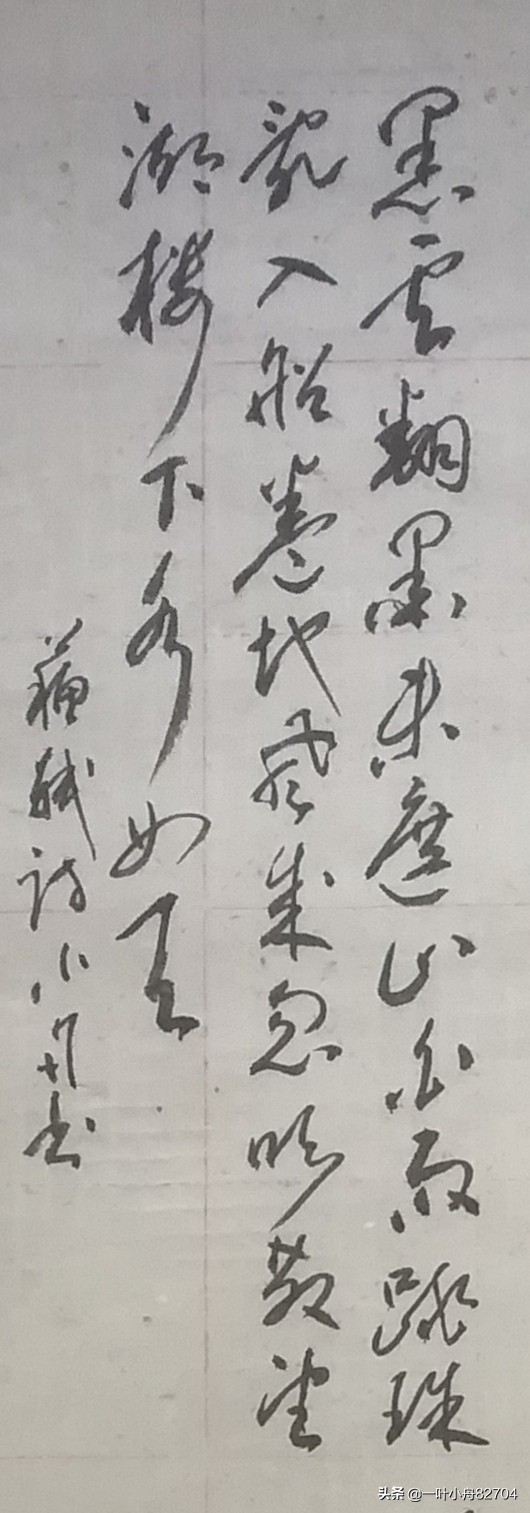 黑雲翻墨未遮山白雨跳珠
亂入船卷地風來忽吹散望
湖樓下水如天
蘇軾詩小舟书
头条 @一叶小舟82704